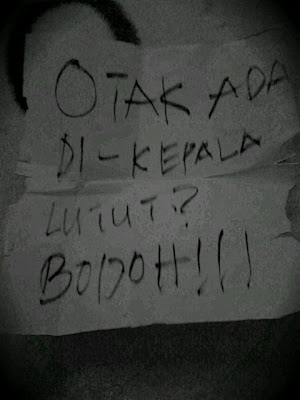 OTAK ADA
DI-KEPALA
LUTUT?
BODOH!!!